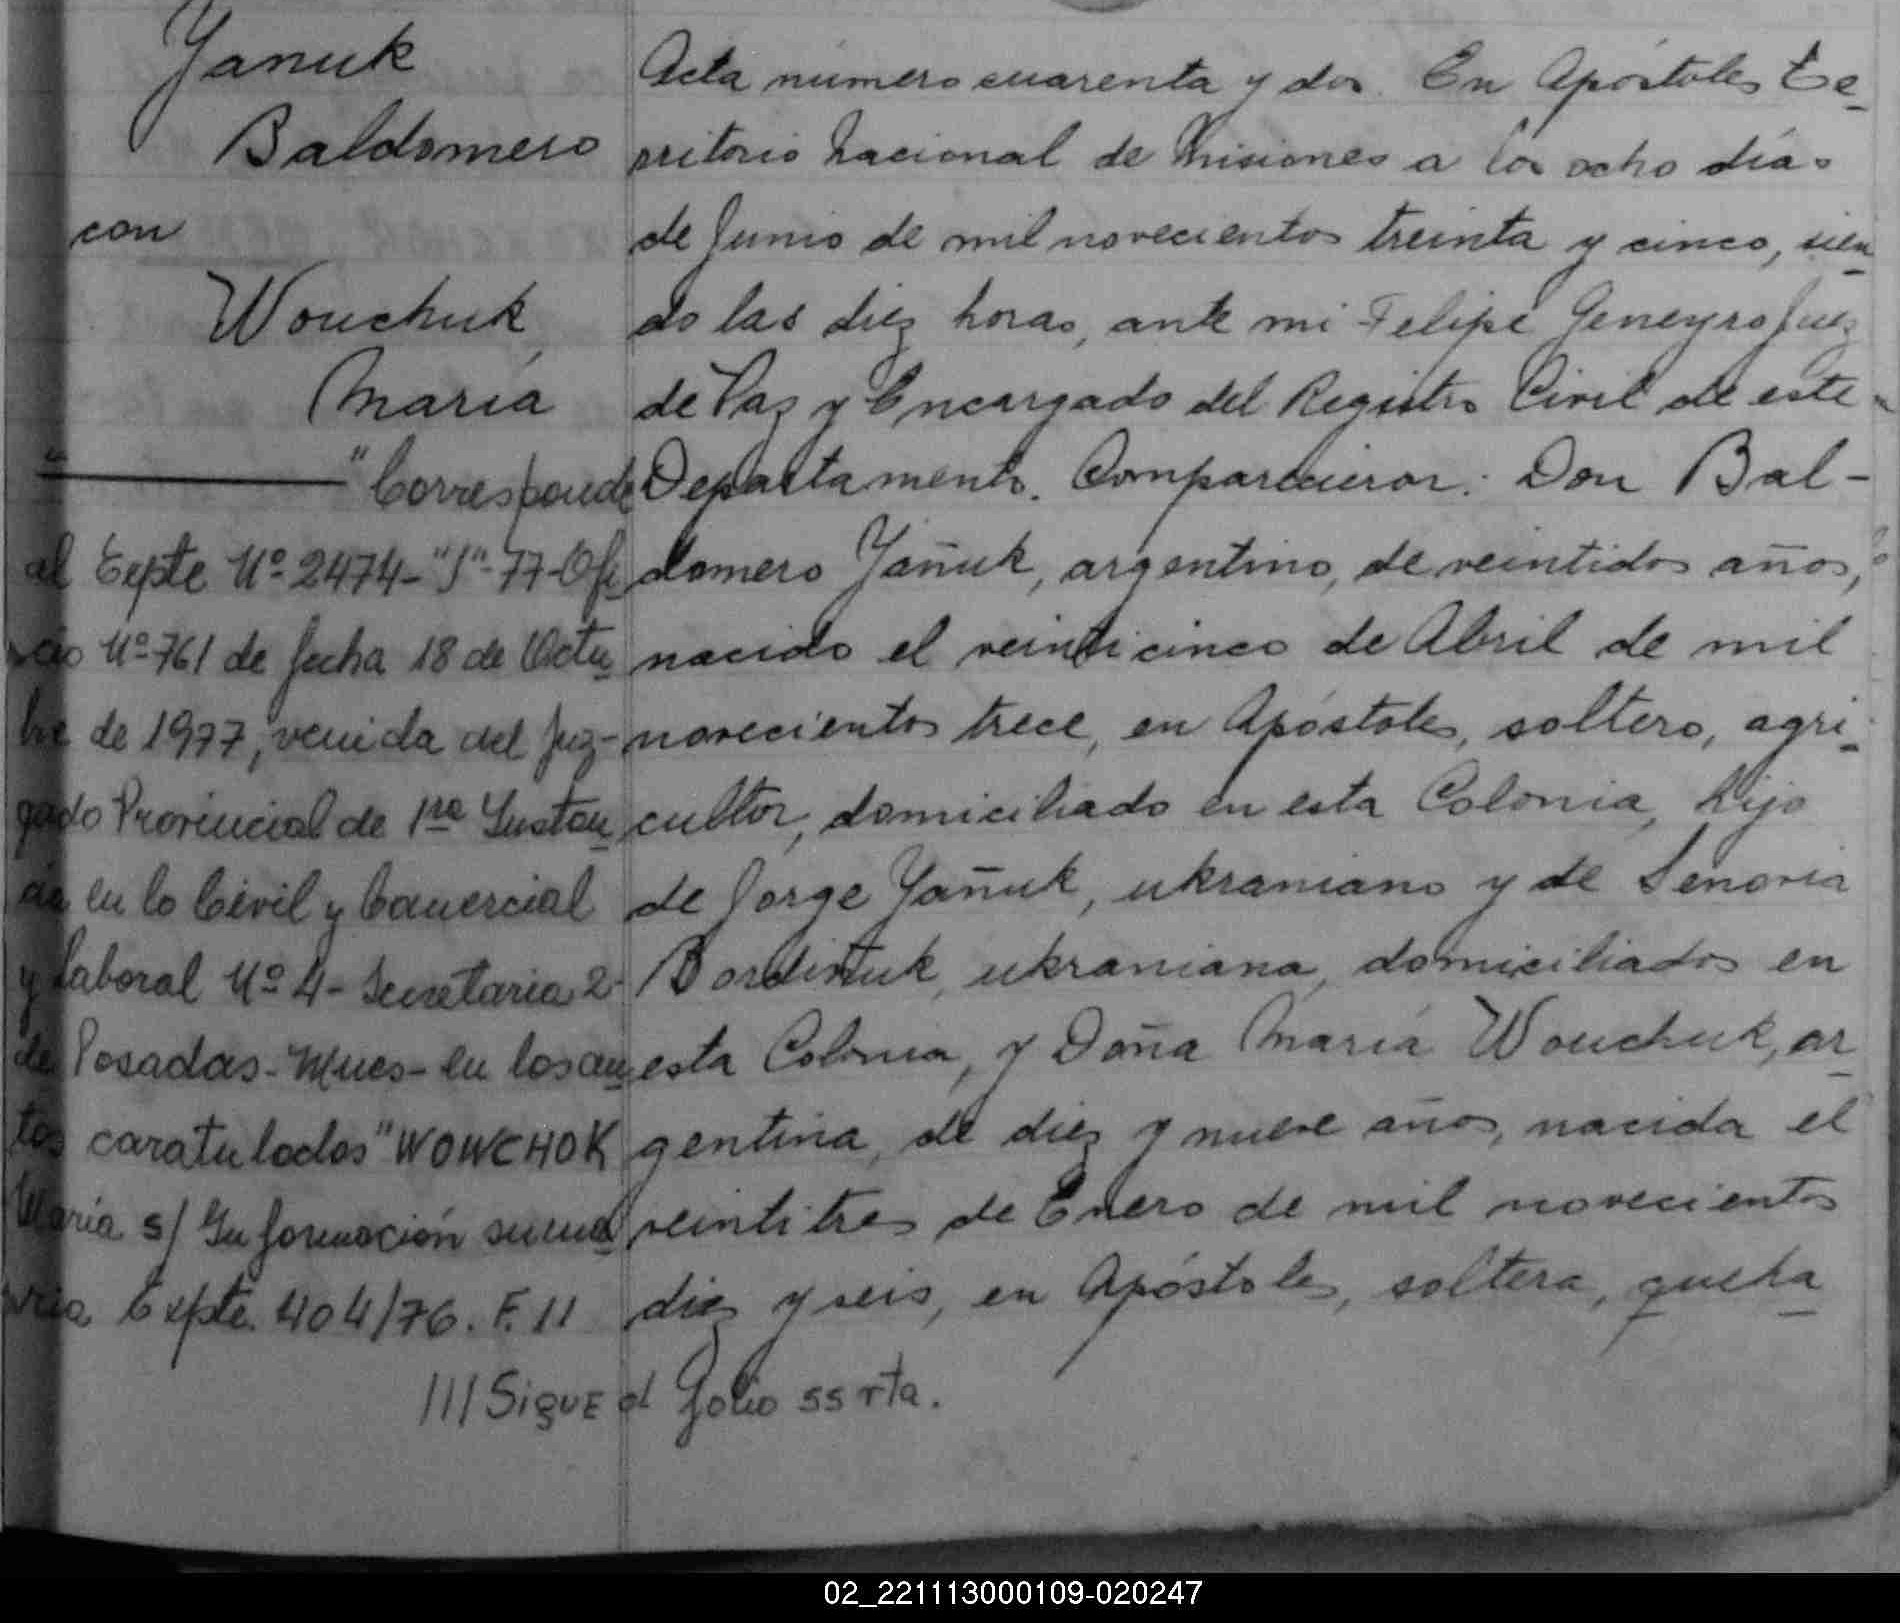 Yanuk
Baldomero
con
Wouchuk
María
"Corresponde
al Expte Nº 2474-"J"-77-Ofi
cio Nº 761 de fecha 18 de Octu
bre de 1977, venida del Juz-
gado Provincial de 1ra Instan
cia en lo Civil y Comercial
y Laboral Nº 4- Secretaria 2-
de Posadas-Mnes- en los au
tos caratulados "WOWCHOK
Maria s/ Información suma
ria Expte. 404/76. F. 11
Acta número cuarenta y dos. En Apóstoles Te-
rritorio Nacional de Misiones a los ocho días
de Junio de mil novecientos treinta y cinco, sien
do las diez horas, ante mi Felipe Geneyro Juez
de Paz y Encargado del Registro Civil de este
Departamento. Comparecieron: Don Bal-
domero Yañuk, argentino, de veintidos años,
nacido el veinticinco de Abril de mil
novecientos trece, en Apóstoles, soltero, agri-
cultor, domiciliado en esta Colonia, hijo
de Jorge Yañuk, ukraniano y de Senovia
Bordiñuk, ukraniana, domiciliados en
esta Colonia, y Doña María Wouchuk, ar
gentina, de diez y nueve años, nacida el
veintitres de Enero de mil novecientos
diez y seis, en Apóstoles, soltera, queha
/// SigUE al folio 55 vta.
02_221113000109-020247